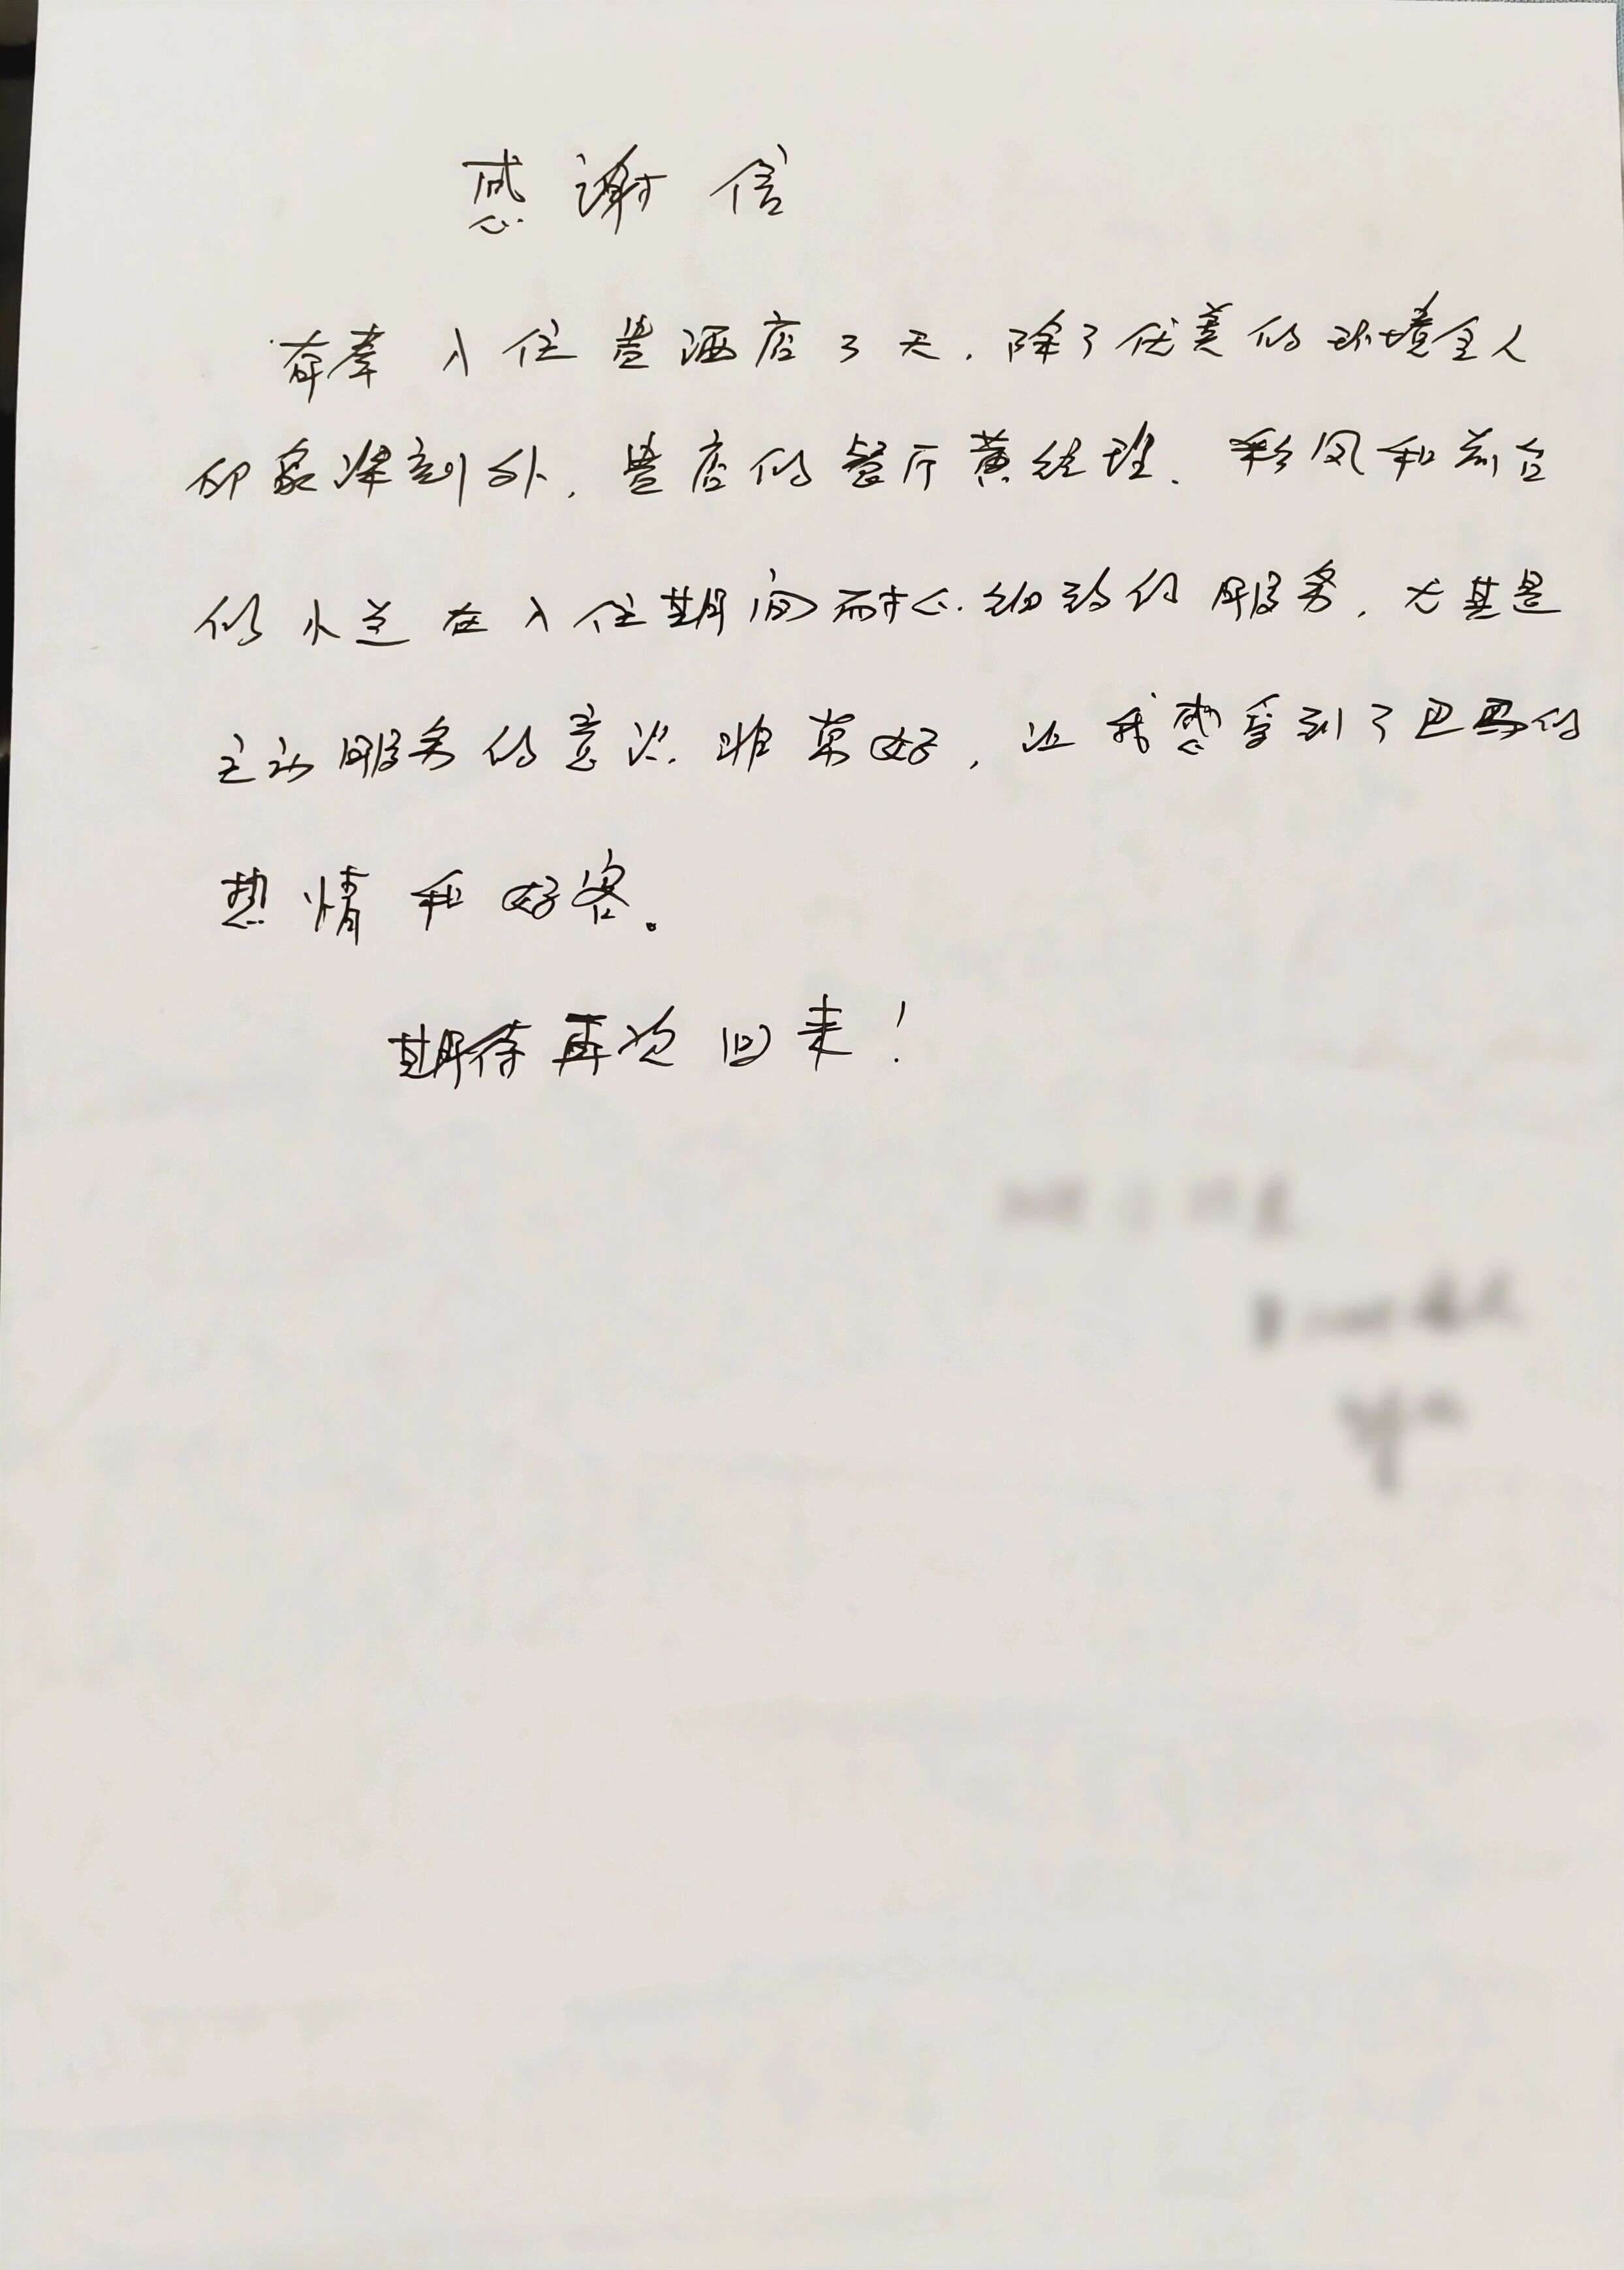 感谢信
有幸入住贵酒店3天,除了优美的环境令人
印象深刻外,贵店的餐厅黄经理、彩凤和前台
的小兰在入住期间耐心细致的服务,尤其是
主动服务的意识非常好,让我感受到了巴马的
热情和好客。
期待再次回来!